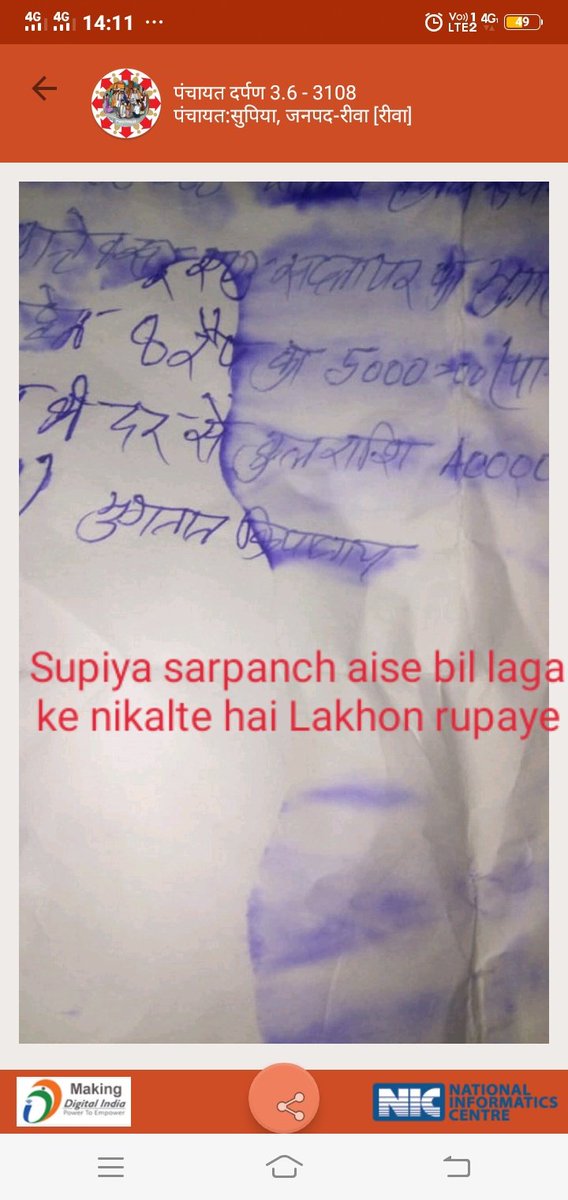 4G 4G 14:11 ...
Vo) 1 4G
LTE2 49
पंचायत दर्पण 3.6 - 3108
पंचायत:सुपिया, जनपद-रीवा [रीवा]
सप्लायर को
8 रैप को 5000=00
की दर से कुल राशि 40000
भुगतान किया जाय
Supiya sarpanch aise bil laga
ke nikalte hai Lakhon rupaye
Making
Digital India
Power To Empower
NIC NATIONAL
INFORMATICS
CENTRE